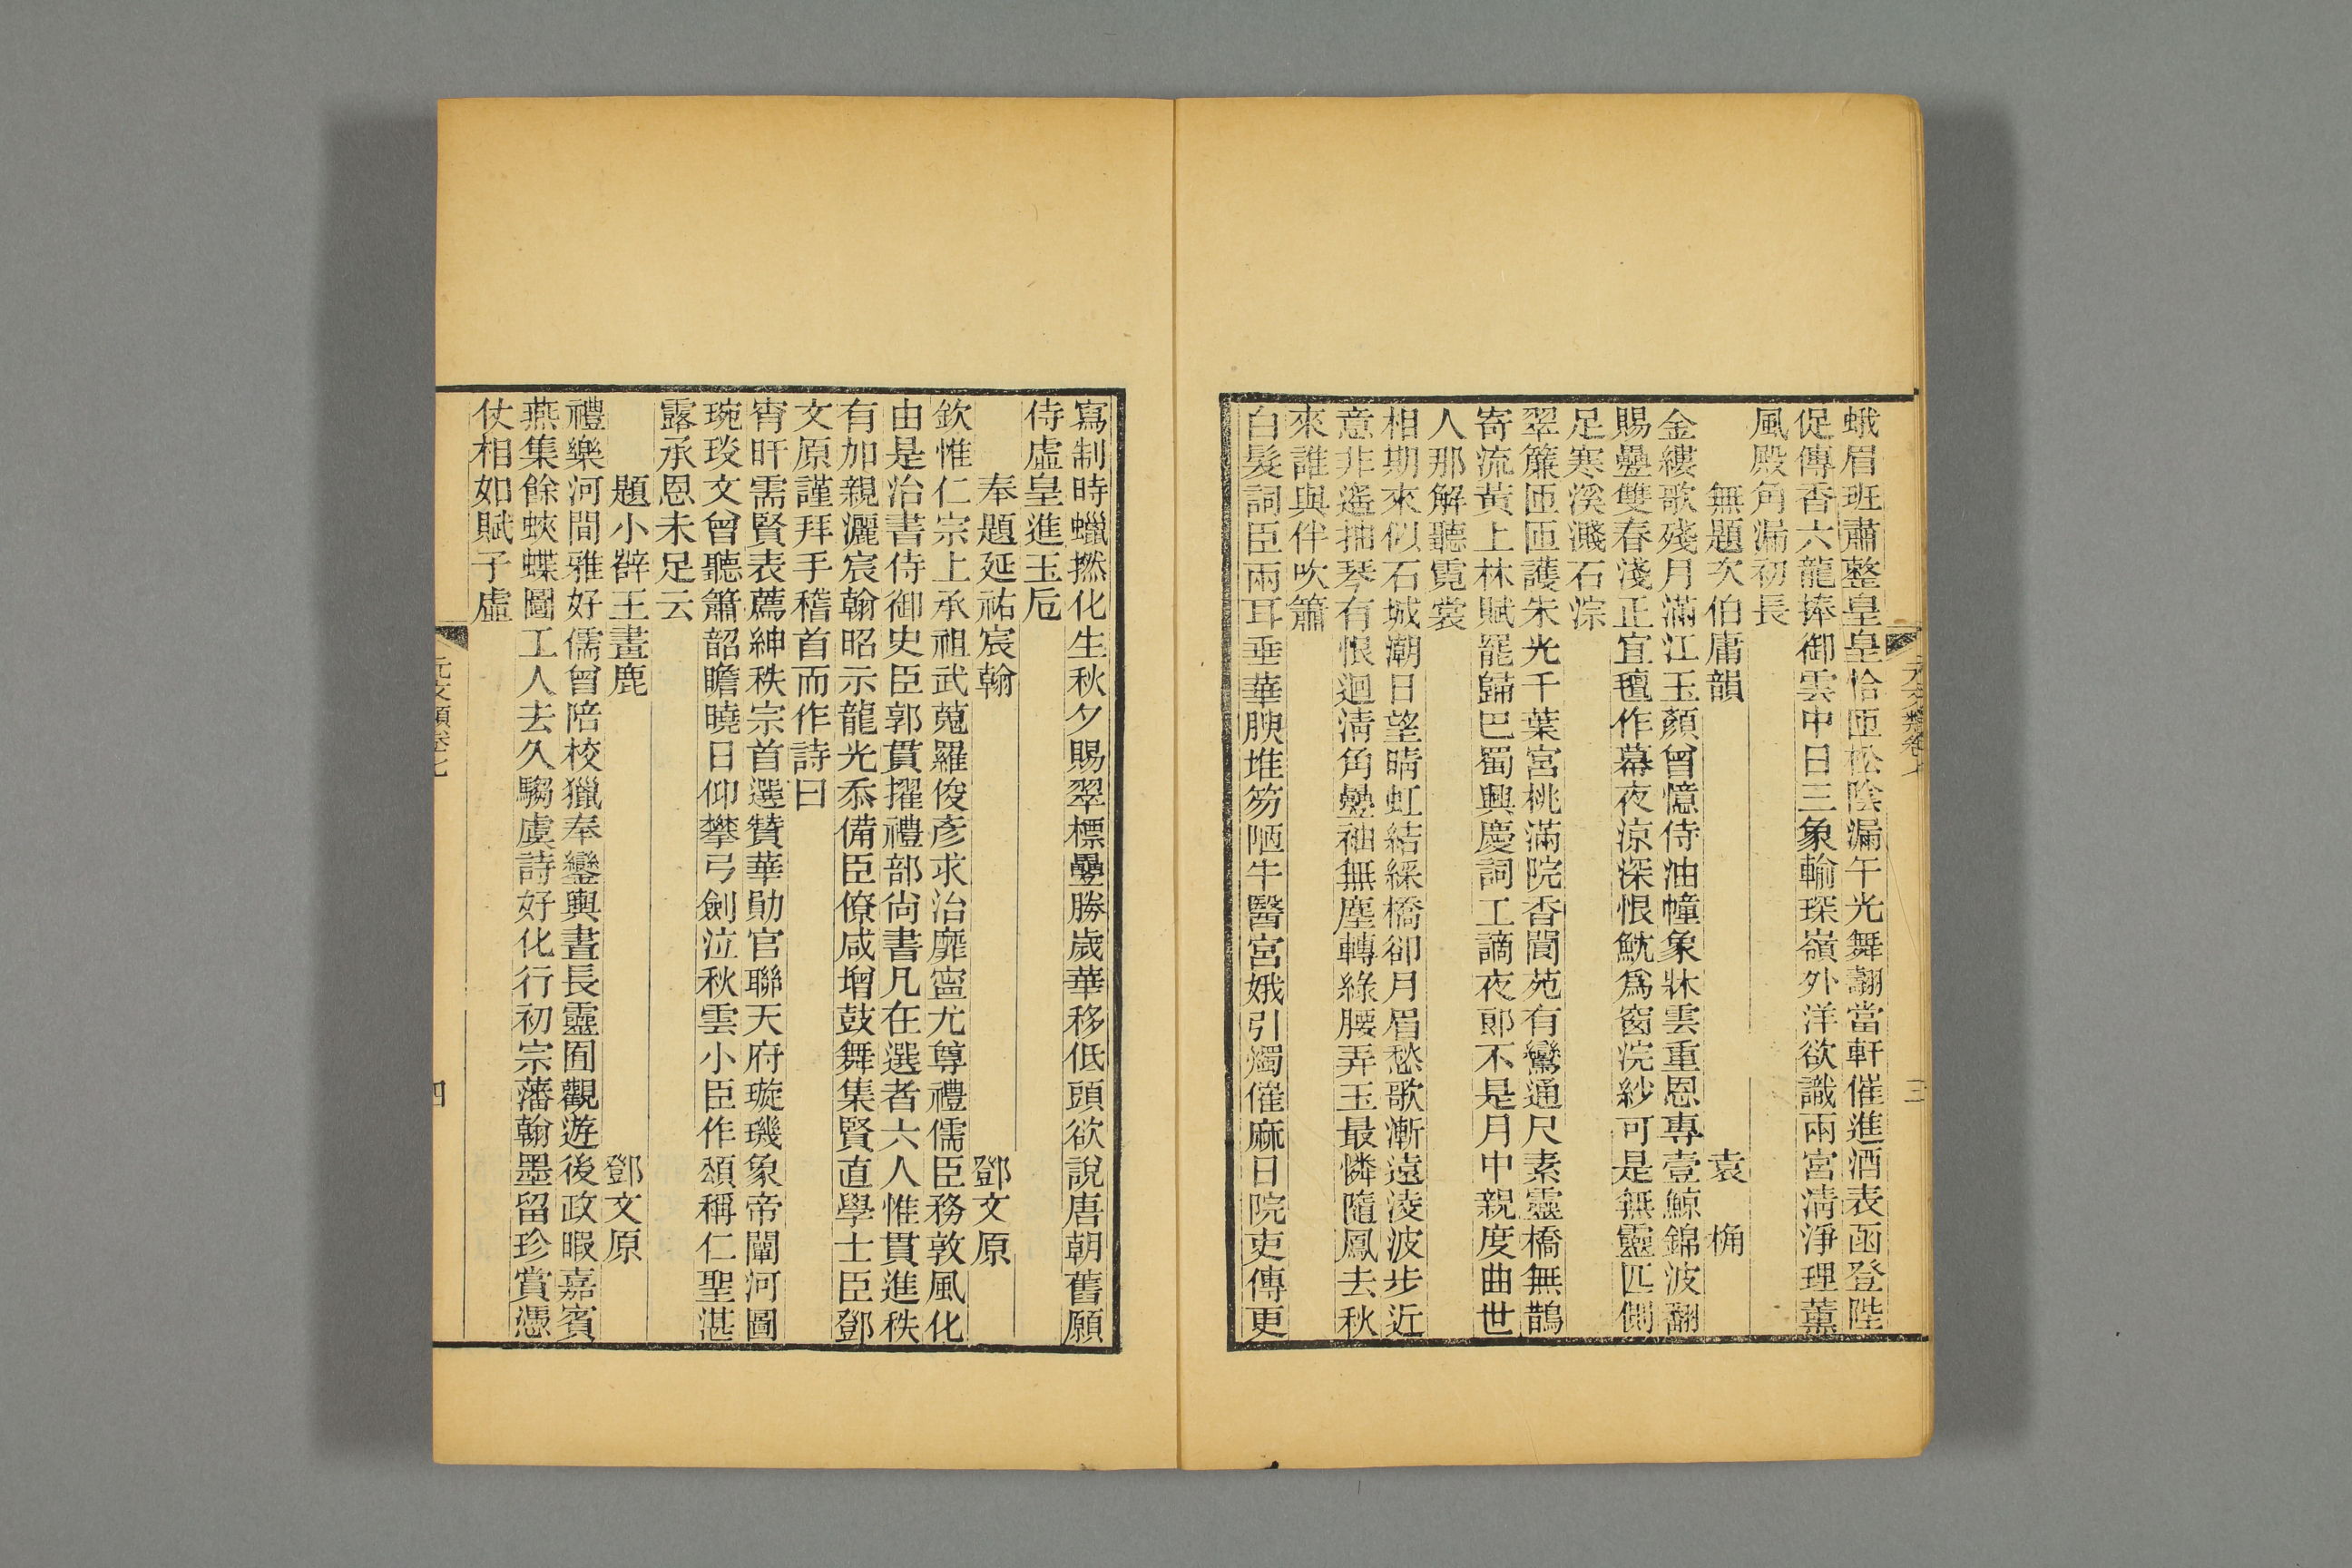 元文類卷七
三
蛾眉班肅整皇皇恰匝松陰漏午光舞翻當軒催進酒表函登陛
促傳香六龍捧御雲中日三象輸琛嶺外洋欲識兩宮清淨理薰
風殿角漏初長
無題次伯庸韻 袁桷
金縷歌殘月滿江玉顏曾憶侍油幢象牀雲重恩專壹鯨錦波翻
賜疊雙春淺正宜氊作幕夜涼深恨魷爲窗浣紗可是無靈匹側
足寒溪濺石淙
翠簾匝匝護朱光千葉宮桃滿院香閬苑有鸞通尺素靈橋無鵲
寄流黃上林賦罷歸巴蜀興慶詞工謫夜郎不是月中親度曲世
人那解聽霓裳
相期來似石城潮日望晴虹結綵橋卻月眉愁歌漸遠淩波步近
意非遙抽琴有恨迴清角㪍袖無塵轉綠腰弄玉最憐隨鳳去秋
來誰與伴吹簫
白髮詞臣兩耳垂華腴堆笏陋牛醫宮娥引燭催麻日院吏傳更
寫制時蠟撚化生秋夕賜翠標疊勝歲華移低頭欲說唐朝舊願
侍虛皇進玉卮
奉題延祐宸翰 鄧文原
欽惟仁宗上承祖武蒐羅俊彥求治靡寧尤尊禮儒臣務敦風化
由是治書侍御史臣郭貫擢禮部尚書凡在選者六人惟貫進秩
有加親灑宸翰昭示龍光忝備臣僚咸增鼓舞集賢直學士臣鄧
文原謹拜手稽首而作詩曰
宵旰需賢表薦紳秩宗首選贊華勛官聯天府璇璣象帝闡河圖
琬琰文曾聽簫韶瞻曉日仰攀弓劍泣秋雲小臣作頌稱仁聖湛
露承恩未足云
題小薛王畫鹿 鄧文原
禮樂河間雅好儒曾陪校獵奉鑾輿晝長靈囿觀遊後政暇嘉賓
燕集餘蛺蝶圖工人去久騶虞詩好化行初宗藩翰墨留珍賞憑
仗相如賦子虛
元文類卷七
四